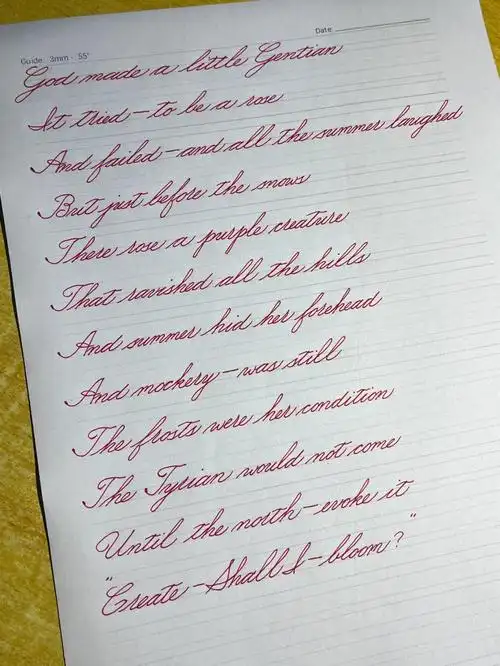 Guide: 3mm - 55°
Date
God made a little Gentian
It tried—to be a rose
And failed—and all the summer laughed
But just before the snows
There rose a purple creature
That ravished all the hills
And summer hid her forehead
And mockery—was still
The frosts were her condition
The Tyrian would not come
Until the north—evoke it
"Create—Shall I—bloom?"